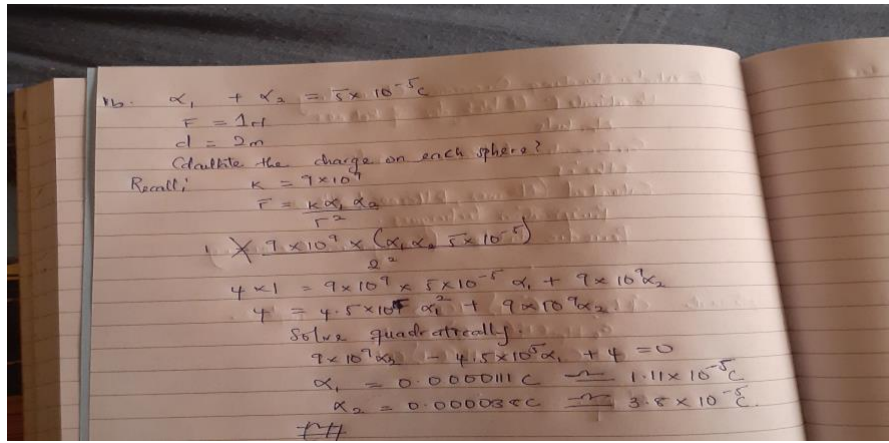 1b. α₁ + α₂ = 5 x 10⁻⁵c
F = 1N
d = 2m
the charge on each sphere?
Recall; K = 9x10⁹
F = kα₁ α₂ / r²
9 x10⁹ x (α₁ α₂ 5 x 10⁻⁵) / 2²
4 x 1 = 9x10⁹ x 5 x 10⁻⁵ α₁ + 9x 10⁹α₂
4 = 4.5x10⁵ α₁² + 9x10⁹α₂
Solve quadratically.
9x10⁹α₂ - 4.5x10⁵α₁ + 4 = 0
α₁ = 0.0000111 C ≃ 1.11x 10⁻⁵C
α₂ = 0.000038C ≃ 3.8 x 10⁻⁵C.